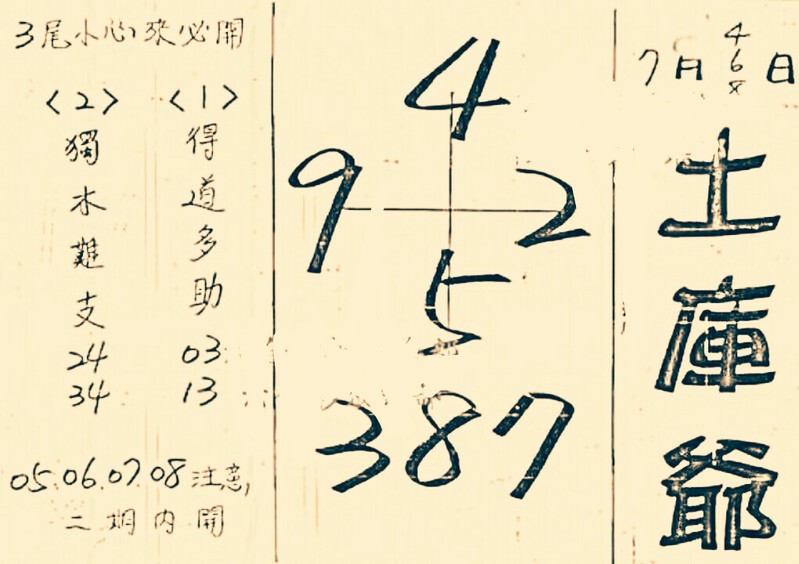 7月4 6 8日
土庫爺
4
9 2
5
387
3尾小心來必開
〈1〉
得道多助
03
13
〈2〉
獨木難支
24
34
05.06.07.08注意,
二期內開